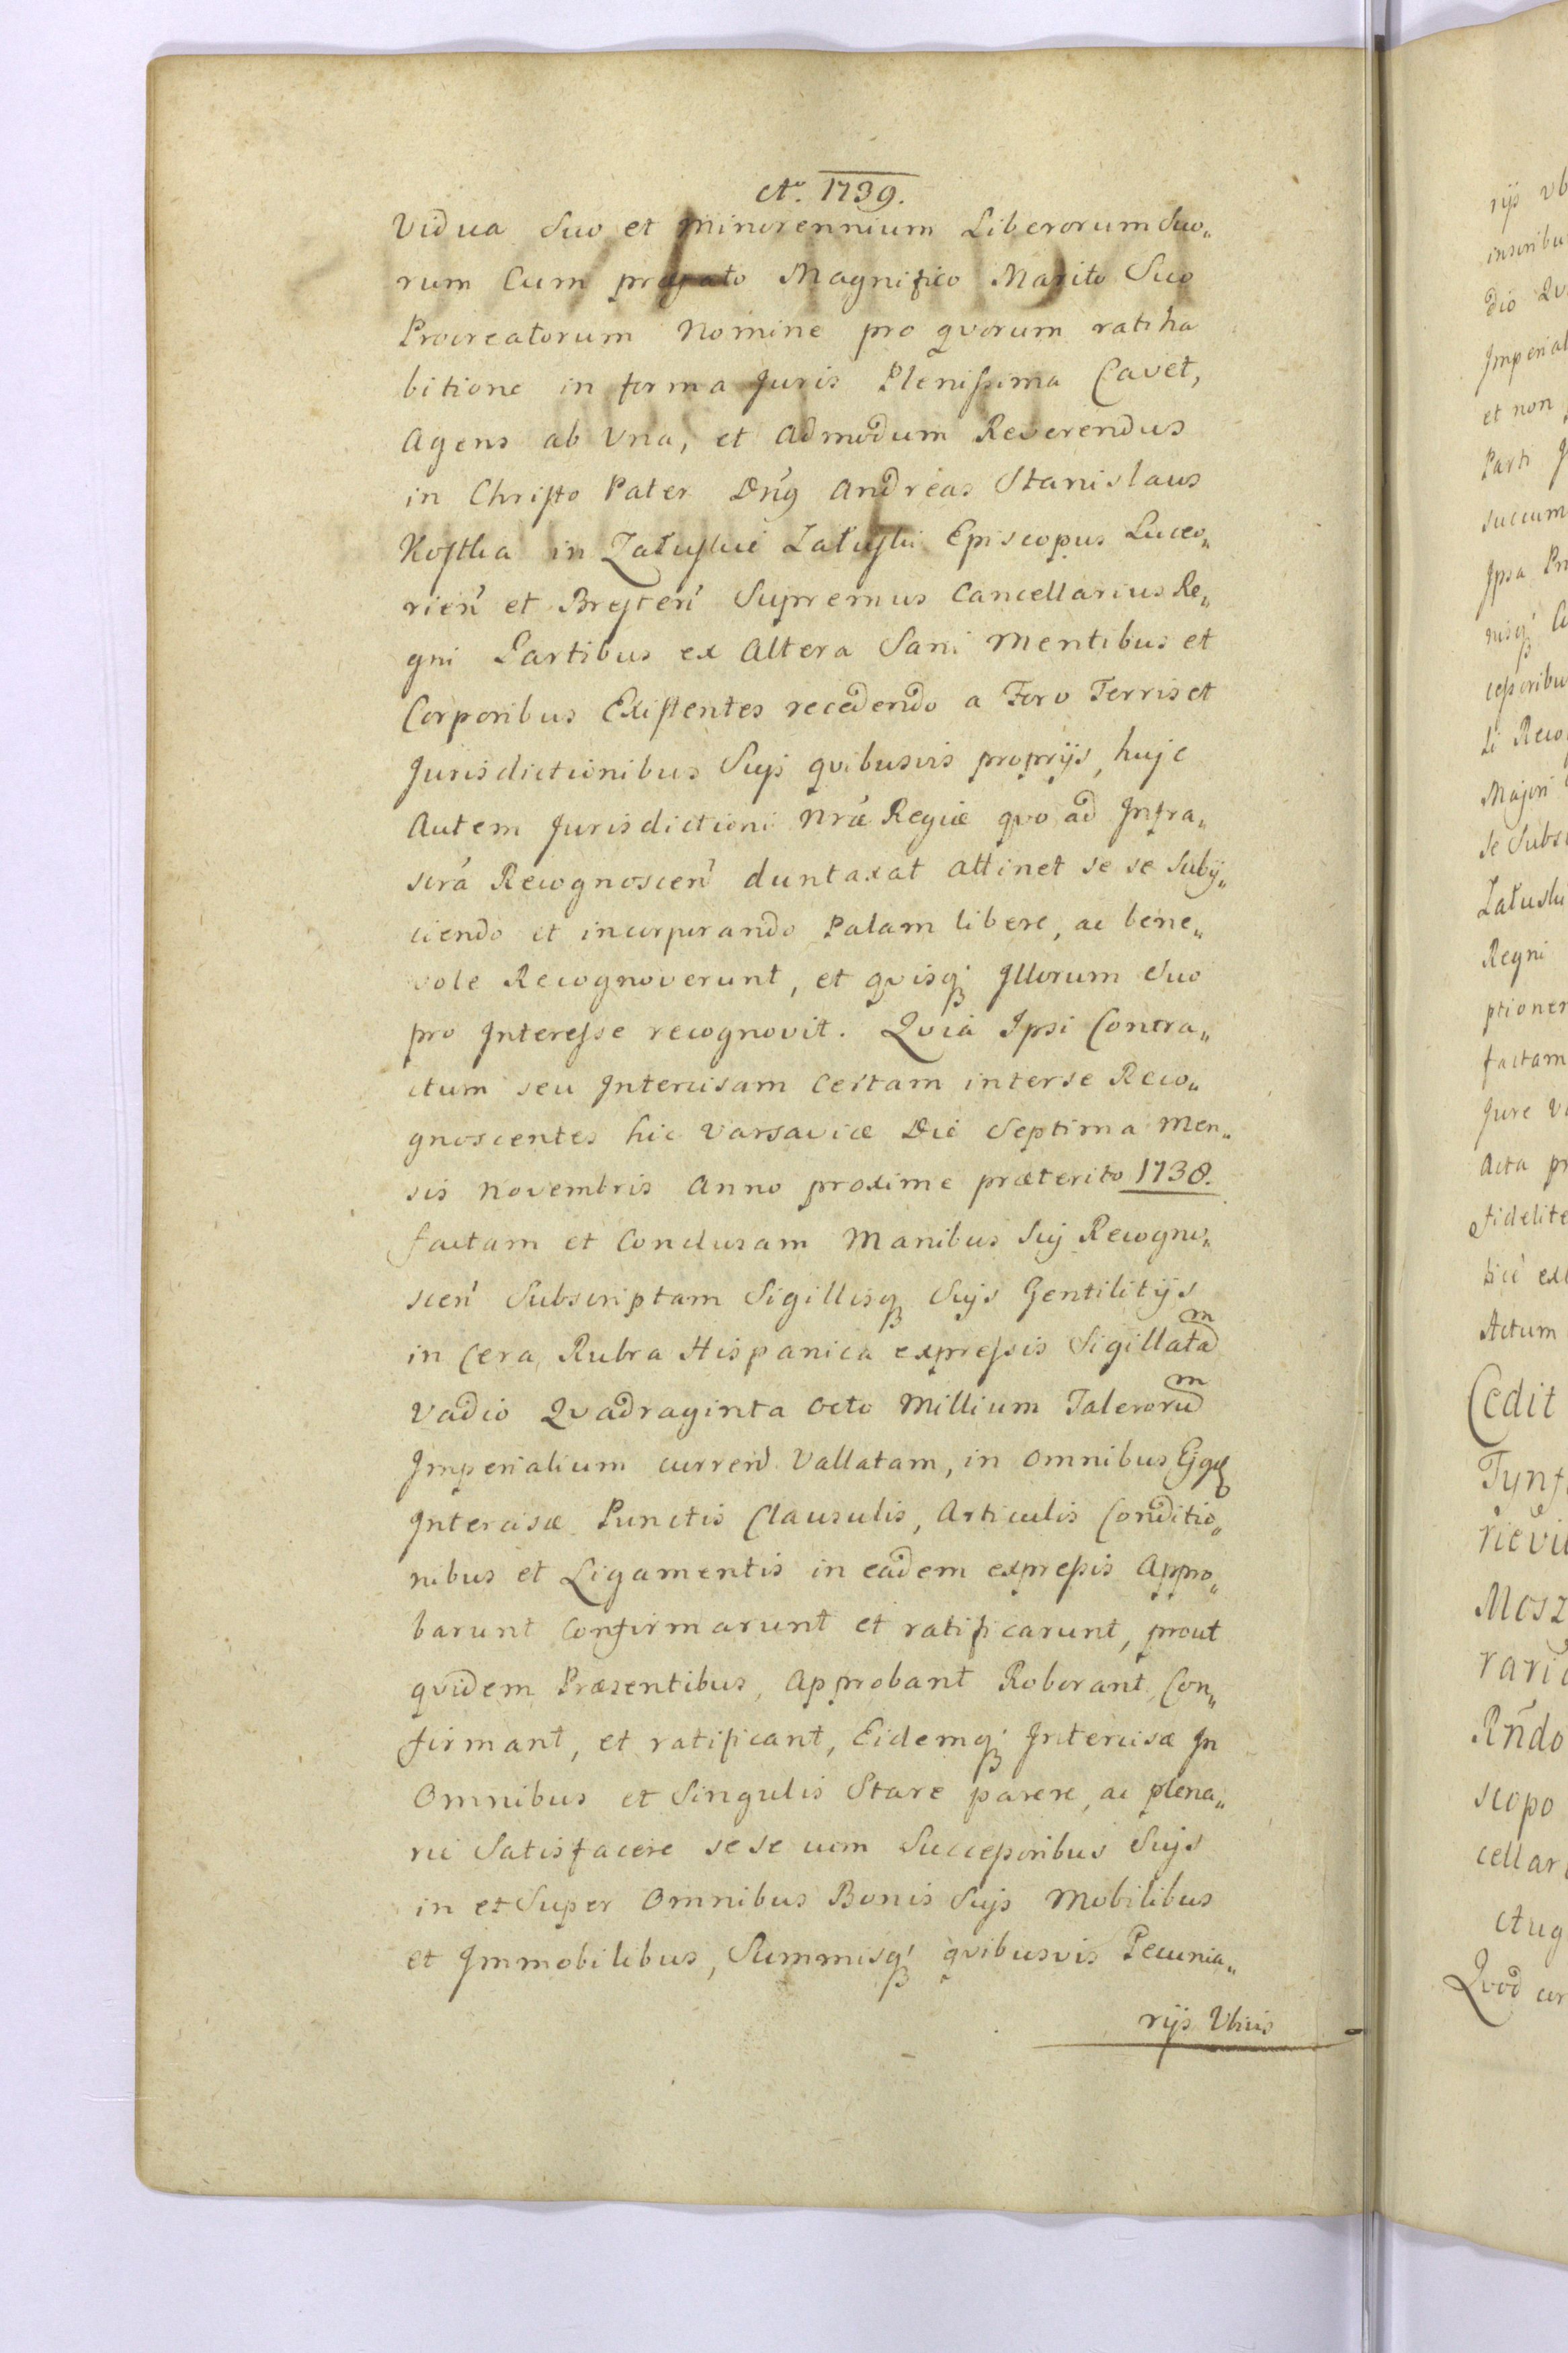 Ao. 1739.
Vidua Suo et minorennium Liberorum Suo„
rum Cum præfato Magnifico Marito Suo
Procreatorum Nomine pro qvorum ratiha
bitione in forma Juris Plenissima Cavet,
Agens ab Una, et Admodum Reverendus
in Christo Pater Dn̄g Andreas Stanislaus
Kostka in Załuskie Załuski Episcopus Luceo„
rien̄ et Bresten̄ Supremus Cancellarius Re„
gni Partibus ex Altera Sani Mentibus et
Corporibus Existentes recedendo a Foro Terris et
Jurisdictionibus Suis qvibusvis proprijs, hujc
Autem Jurisdictioni Nræ Regiæ qvo ad Infra„
scrã Recognoscen̄ duntaxat attinet se se Subij„
ciendo et incorporando Palam libere, ac bene„
vole Recognoverunt, et qvisq; Illorum Suo
pro Interesse recognovit. Qvia Ipsi Contra„
ctum seu Intercisam Certam inter se Reco„
gnoscentes hic Varsaviæ Die Septima Men„
sis Novembris Anno proxime præterito 1738.
factam et Conclusam Manibus Suis Recogno„
scen̄ Subscriptam Sigillisq; Suis Gentilitijs
in Cera Rubra Hispanica expressis Sigillatam
Vadio Qvadraginta Octo Millium Talerorum
Imperialium curren̄ Vallatam, in Omnibus Ejgd
Intercisæ Punctis Clausulis, Articulis Conditio„
nibus et Ligamentis in eadem expressis Appro„
barunt Confirmarunt et ratificarunt, prout
qvidem Præsentibus, Approbant Roborant, Con„
firmant, et ratificant, Eidemq; Intercisæ In
Omnibus et Singulis Stare parere, ac plena„
rie Satisfacere se se cum Successoribus Suis
in et Super Omnibus Bonis Suis Mobilibus
et Immobilibus, Summisq; qvibusvis Pecunia„
rijs Ubivis
rijs Ub
dio Qv
Imperial
et non
Parti
succum
Ipsa
Majori
Załuski
Regni
ptionem
factam
Jure
Acta
fidelite
Actum
Cedit
Tynf
rievi
Mosz
Rn̄do
scopo
cellar
Aug
Qvod cor